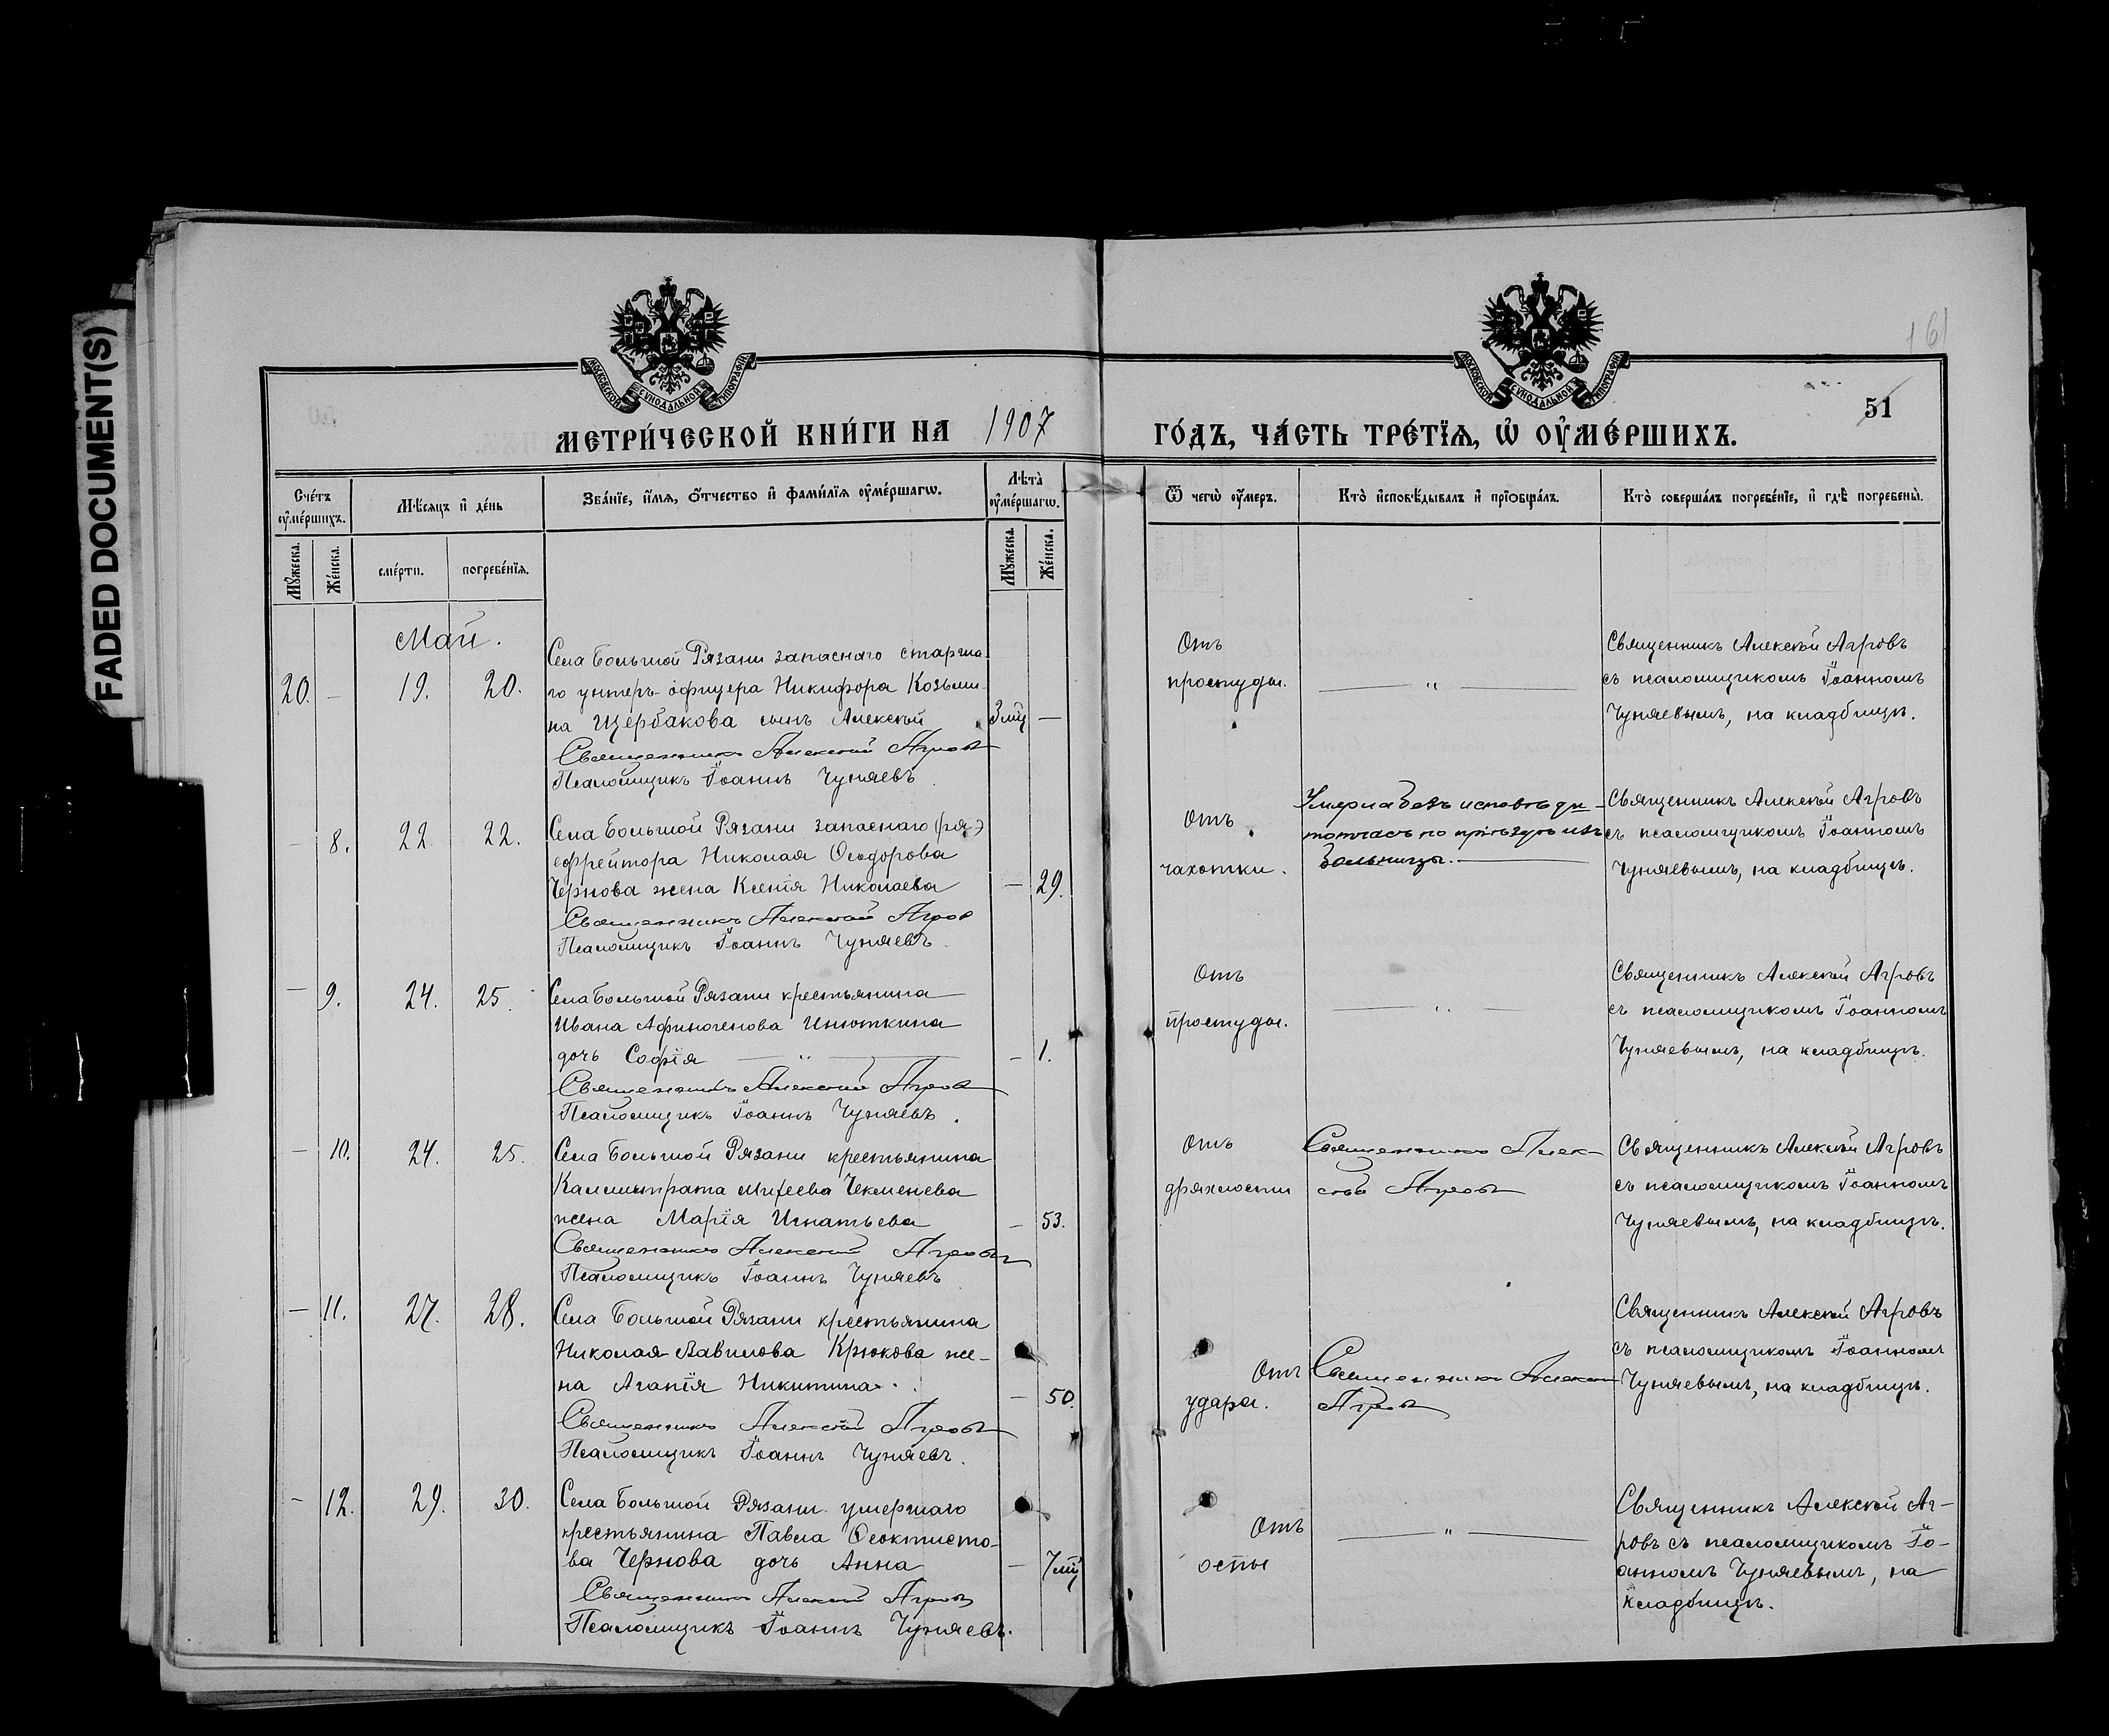 FADED DOCUMENT(S)
МОСКОВСКОЙ СѴНОДАЛЬНОЙ ТИПОГРАФІИ
МОСКОВСКОЙ СѴНОДАЛЬНОЙ ТИПОГРАФІИ
161
51
МЕТРИ́ЧЕСКОЙ КНИ́ГИ НА 1907 ГО́ДЪ, ЧА́СТЬ ТРЕ́ТЇѦ, Ѡ҆ ОУ҆МЕ́РШИХЪ.
Сче́тъ оу҆ме́ршихъ.
Мꙋ́жеска.
Же́нска.
Мѣ́сѧцъ и҆ де́нь
сме́рти.
погребе́нїѧ.
Зва́нїе, и҆́мѧ, ѻ҆́тчество и҆ фами́лїѧ оу҆ме́ршагѡ.
Лѣ́та̀ оу҆ме́ршагѡ.
Мꙋ́жеска.
Же́нска.
Ѿ чегѡ̀ оу҆́меръ.
Кто̀ и҆сповѣ́дывалъ и҆ прїѡбща́лъ.
Кто̀ соверша́лъ погребе́нїе, и҆ гдѣ̀ погребены̀.
Май.
20. — 19. 20.
Села Большой Рязани запаснаго старша-
го унтеръ-офицера Никифора Козьми-
на Щербакова сынъ Алексѣй 3 мц —
Священникъ Алексѣй Агровъ
Псаломщикъ Іоаннъ Чуняевъ
Отъ
простуды.
— „ —
Священникъ Алексѣй Агровъ
съ псаломщикомъ Іоанномъ
Чуняевымъ, на кладбищѣ.
— 8. 22. 22.
Села Большой Рязани запаснаго (ря-)
ефрейтора Николая Ѳеодорова
Чернова жена Ксенія Николаева — 29.
Священникъ Алексѣй Агров
Псаломщикъ Іоаннъ Чуняевъ.
Отъ
чахотки.
Умерла безъ исповѣди —
тотчасъ по пріѣздѣ изъ
больницы. —
Священникъ Алексѣй Агровъ
съ псаломщикомъ Іоанномъ
Чуняевымъ, на кладбищѣ.
— 9. 24. 25.
Села Большой Рязани крестьянина
Ивана Афиногенова Инюткина
дочь Софія — „ — — 1.
Священникъ Алексѣй Агров
Псаломщикъ Іоаннъ Чуняевъ.
Отъ
простуды.
— „ —
Священникъ Алексѣй Агровъ
съ псаломщикомъ Іоанномъ
Чуняевымъ, на кладбищѣ.
— 10. 24. 25.
Села Большой Рязани крестьянина
Каллистрата Михеева Чекменева
жена Марія Игнатьева — 53.
Священникъ Алексѣй Агровъ
Псаломщикъ Іоаннъ Чуняевъ
Отъ
дряхлости
Священникъ Алек-
сѣй Агровъ
Священникъ Алексѣй Агровъ
съ псаломщикомъ Іоанномъ
Чуняевымъ, на кладбищѣ.
— 11. 27. 28.
Села Большой Рязани крестьянина
Николая Вавилова Крюкова же-
на Агапія Никитина. — 50.
Священникъ Алексѣй Агровъ
Псаломщикъ Іоаннъ Чуняевъ.
Отъ
удара.
Священникъ Алексѣй
Агровъ
Священникъ Алексѣй Агровъ
съ псаломщикомъ Іоанномъ
Чуняевымъ, на кладбищѣ.
— 12. 29. 30.
Села Большой Рязани умершаго
крестьянина Павла Ѳеоктисто-
ва Чернова дочь Анна — 7 мц
Священникъ Алексѣй Агровъ
Псаломщикъ Іоаннъ Чуняевъ.
Отъ
оспы
— „ —
Священникъ Алексѣй Аг-
ровъ съ псаломщикомъ Іо-
анномъ Чуняевымъ, на
кладбищѣ.